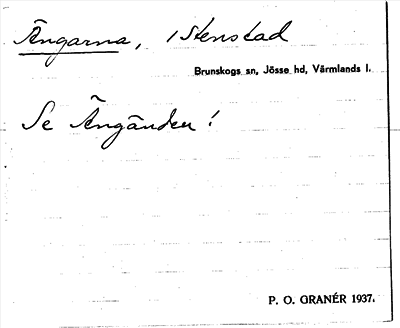 Ängarna, i Stenstad
Brunskogs sn, Jösse hd, Värmlands l.
Se Ängänden!
P. O. GRANÉR 1937.